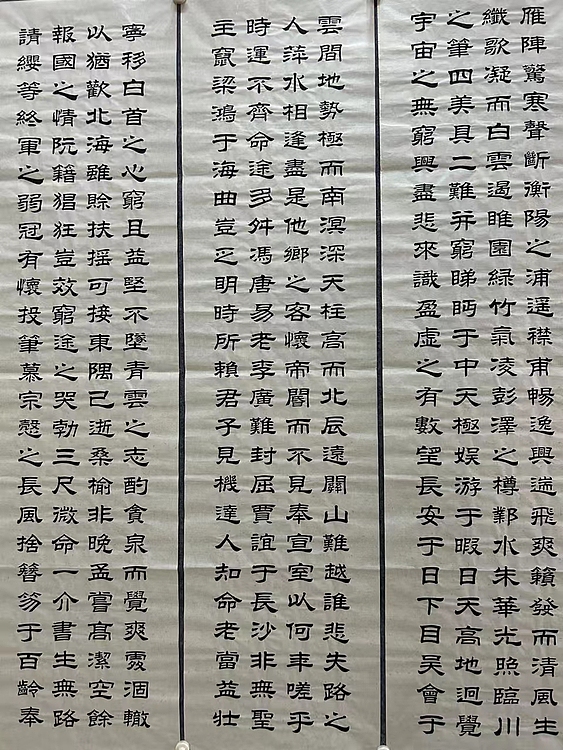 雁陣驚寒聲斷衡陽之浦遥襟甫暢逸興遄飛爽籟發而清風生
纖歌凝而白雲遏睢園綠竹氣凌彭澤之樽鄴水朱華光照臨川
之筆四美具二難并窮睇眄于中天極娛游于暇日天高地迥覺
宇宙之無窮興盡悲來識盈虛之有數望長安于日下目吳會于
雲間地勢極而南溟深天柱高而北辰遠關山難越誰悲失路之
人萍水相逢盡是他鄉之客懷帝閽而不見奉宣室以何年嗟乎
時運不齊命途多舛馮唐易老李廣難封屈賈誼于長沙非無聖
主竄梁鴻于海曲豈乏明時所賴君子見機達人知命老當益壯
寧移白首之心窮且益堅不墜青雲之志酌貪泉而覺爽處涸轍
以猶歡北海雖賒扶搖可接東隅已逝桑榆非晚孟嘗高潔空餘
報國之情阮籍猖狂豈效窮途之哭勃三尺微命一介書生無路
請纓等終軍之弱冠有懷投筆慕宗愨之長風捨簪笏于百齡奉